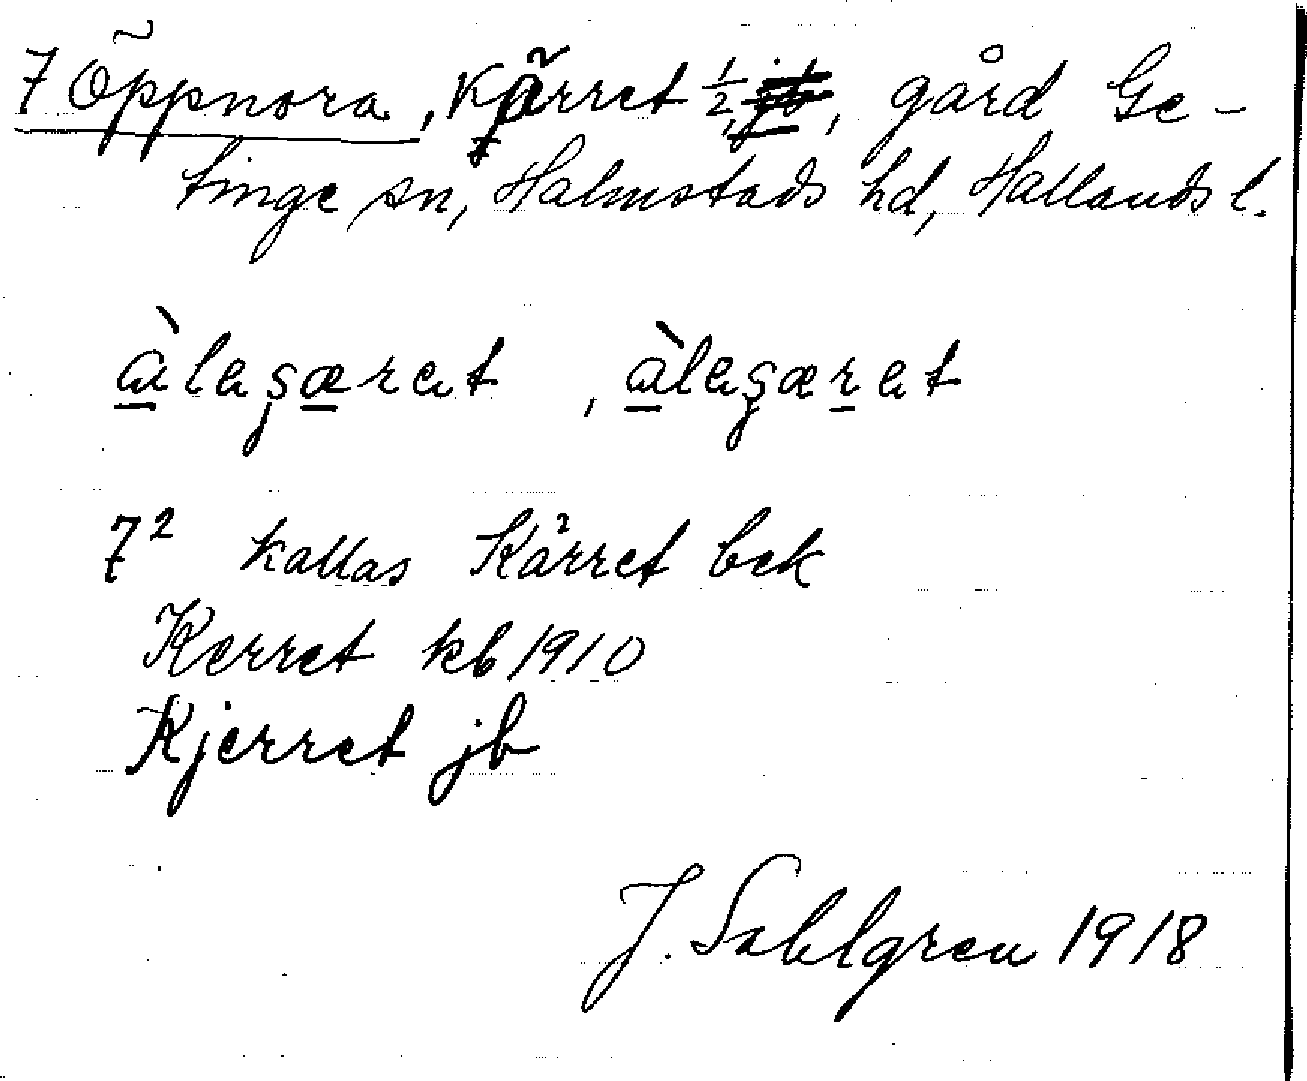 7 Öppnora, Kärret 1/2, jb, gård Ge-
tinge sn, Halmstads hd, Hallands l.
àlegæret, àlegæret
7² kallas Kärret bek
Kerret kb 1910
Kjerret jb
J. Sahlgren 1918